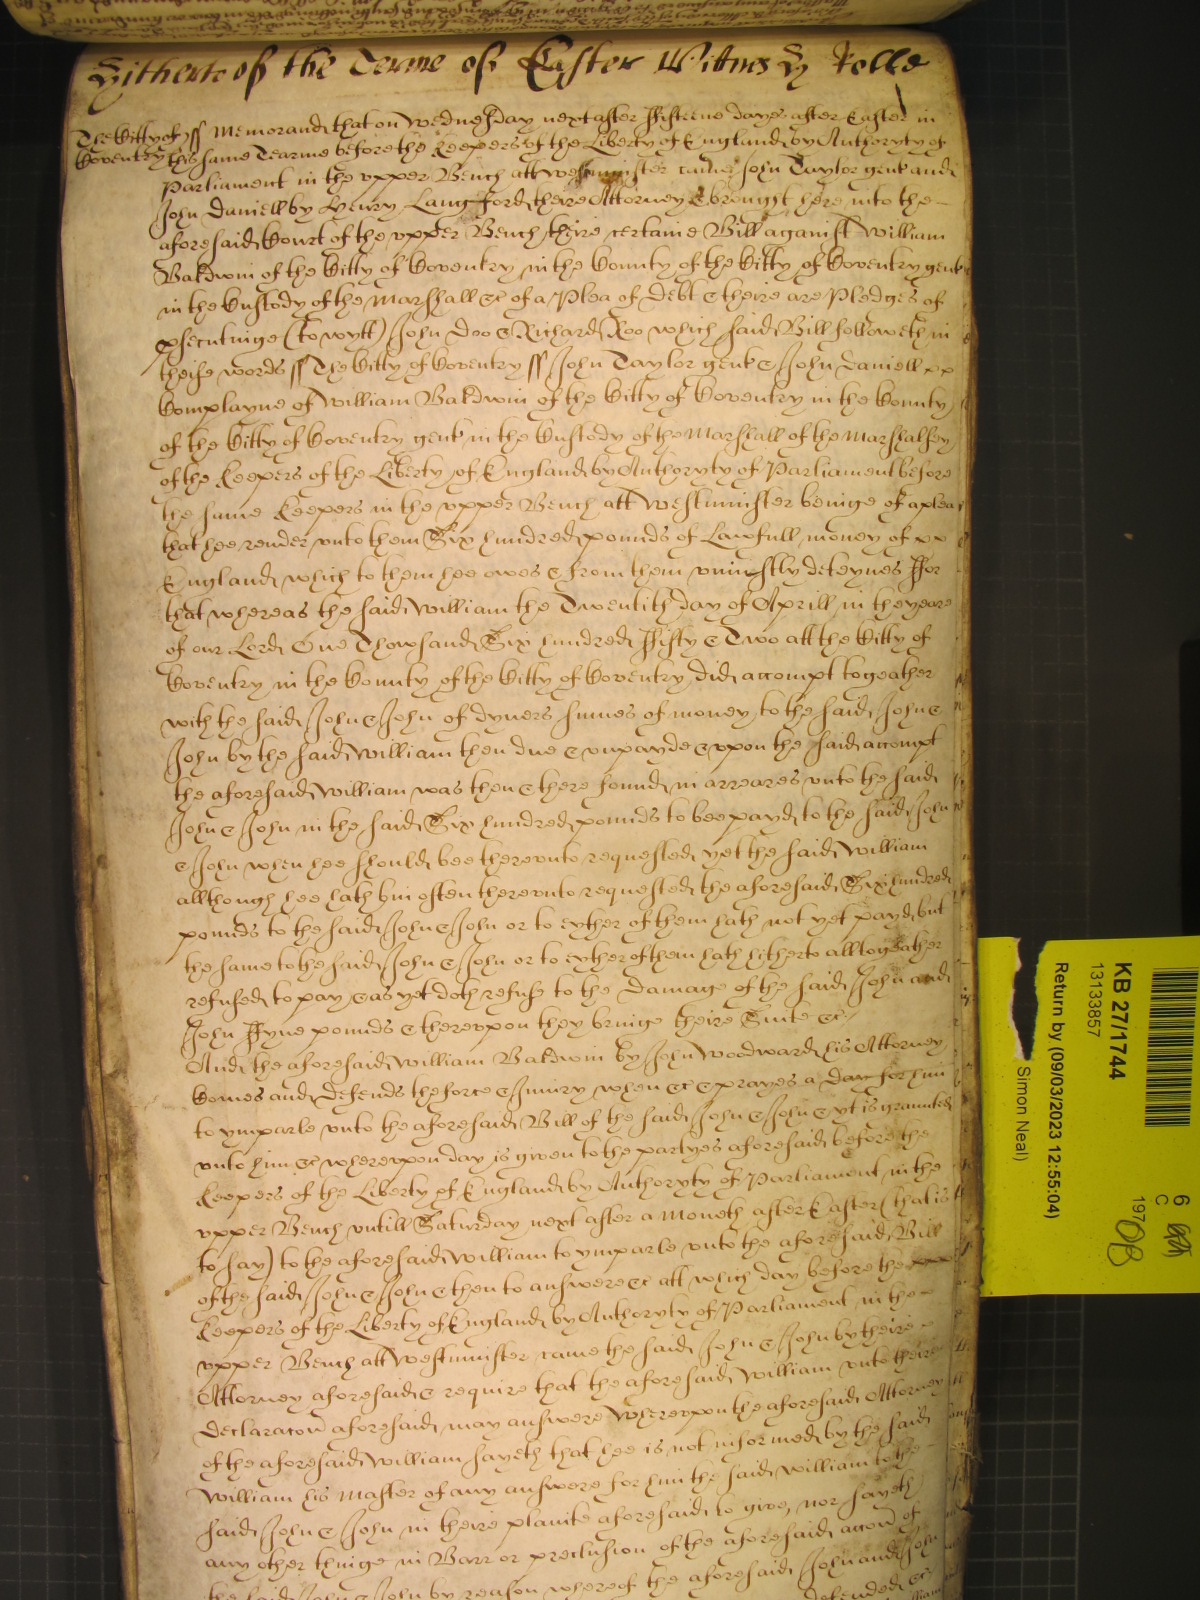 Hitherto of the Terme of Easter Witnes H Rolle
The Citty of ss Memorand that on Wednesday next after ffifteene dayes after Easter in
Coventry this same Tearme before the Keepers of the Liberty of England by Authoryty of
Parliament in the upper Bench att Westminister came John Taylor gent and
John Daniell by Henry Langford theire Attorney & brought here into the
aforesaid Court of the upper Bench theire certaine Bill against William
Baldwin of the Citty of Coventry in the County of the Citty of Coventry gent
in the Custody of the Marshall &c of a Plea of Debt & theire are Pledges of
psecutinge (to wytt) John Doo & Richard Roo which said Bill followeth in
theise words ss The Citty of Coventry ss John Taylor gent & John Daniell
Complayne of William Baldwin of the Citty of Coventry in the County
of the Citty of Coventry gent in the Custody of the Marshall of the Marshalsey
of the Keepers of the Liberty of England by Authoryty of Parliament before
the same Keepers in the upper Bench att Westminister beinge of a plea
that hee render unto them Six hundred pounds of Lawfull money of
England which to them hee owes & from them uniustly deteynes ffor
that whereas the said William the Twentith day of Aprill in the yeare
of our Lord One Thowsand Six hundred ffifty & Two att the Citty of
Coventry in the County of the Citty of Coventry did accompt togeather
with the said John & John of dyvers sumes of money to the said John &
John by the said William then due & unpayde & upon the said accompt
the aforesaid William was then & there found in arreares unto the said
John & John in the said Six hundred pounds to bee payd to the said John
& John when hee should bee thereunto requested yet the said William
allthough hee hath bin often thereunto requested the aforesaid Six hundred
pounds to the said John & John or to eyther of them hath not yet payd but
the same to the said John & John or to eyther of them hath hitherto alltogeather
refused to pay & as yet doth refuse to the Damage of the said John and
John ffyve pounds & thereupon they bringe theire Suite &c
And the aforesaid William Baldwin by John Woodward his Attorney
Comes and defends the force & Iniury when &c & prayes a day for him
to ymparle unto the aforesaid Bill of the said John & John & yt is graunted
unto him &c whereupon day is given to the partyes aforesaid before the
Keepers of the Liberty of England by Authoryty of Parliament in the
upper Bench untill Saturday next after a Moneth after Easter (that is
to say) to the aforesaid William to ymparle unto the aforesaid Bill
of the said John & John & then to answere &c att which day before the
Keepers of the Liberty of England by Authoryty of Parliament in the
upper Bench att Westminister came the said John & John by theire
Attorney aforesaid & require that the aforesaid William unto theire
Declaracon aforesaid may answere Whereupon the aforesaid Attorney
of the aforesaid William sayeth that hee is not informed by the said
William his Master of any answere for him the said William to the
said John & John in theire plainte aforesaid to give, nor sayeth
any other thinge in Barr or preclusion of the aforesaid accon of
the said John & John by reason whereof the aforesaid John and John
defended &c
KB 27/1744
13133857
Return by (09/03/2023 12:55:04)
Simon Neal)
6
C
197